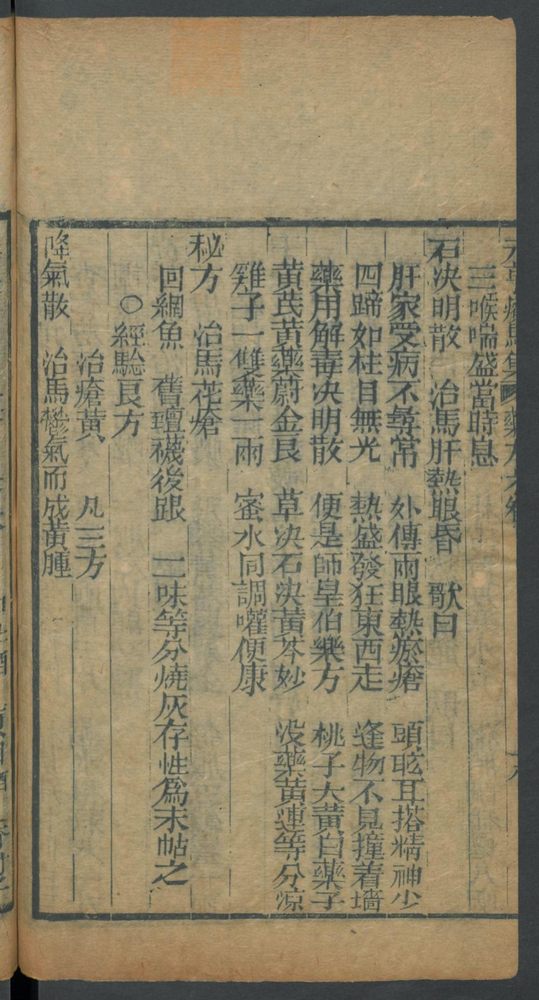 三喉喘盛當時息
石决明散　治馬肝熱眼昏　歌曰
肝家受病不尋常　外傳兩眼熱瘀瘡　頭眩耳搭精神少
四蹄如柱目無光　熱盛發狂東西走　逢物不見撞着墻
藥用解毒决明散　便是師皇伯樂方　桃子大黃白藥子
黃芪黃藥蔚金良　草决石决黃芩妙　沒藥黃連等分凉
雞子一雙藥二兩　蜜水同調嚾便康
秘方　治馬花瘡
回網魚　舊襪後跟　二味等分燒灰存性爲末帖之
○經驗良方
治瘡黃　凡三方
降氣散　治馬鬱氣而成黃腫